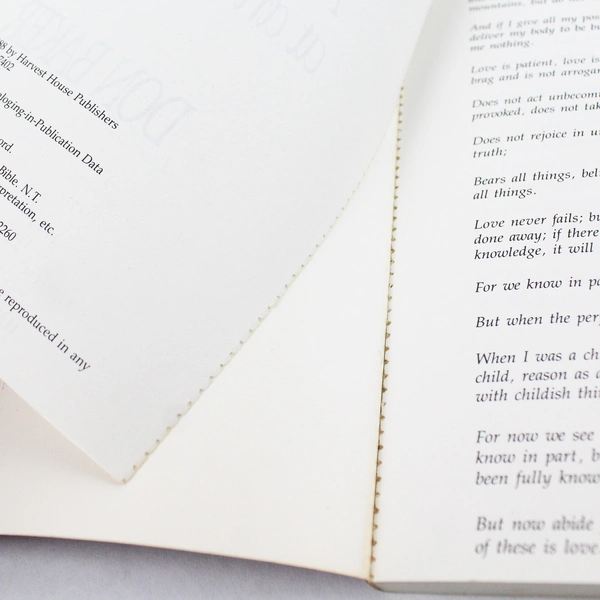 88 by Harvest House Publishers
7402
aloging-in-Publication Data
ord.
Bible. N.T.
rpretation, etc.
2260
e reproduced in any
mountains, but do
And if I give all my pos
deliver my body to be bu
me nothing.
Love is patient, love is
brag and is not arrogan
Does not act unbecomi
provoked, does not tak
Does not rejoice in un
truth;
Bears all things, beli
all things.
Love never fails; bu
done away; if there
knowledge, it will
For we know in pa
But when the per
When I was a ch
child, reason as a
with childish thin
For now we see
know in part, b
been fully know
But now abide
of these is love.